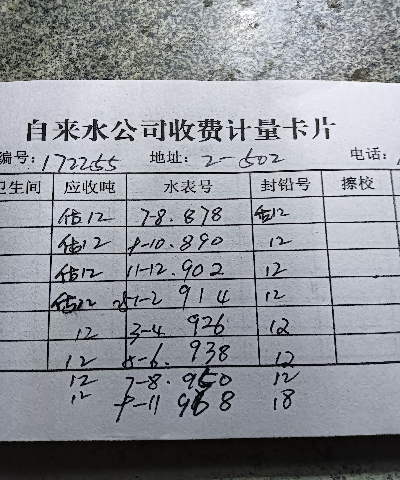 自来水公司收费计量卡片
编号: 172255 地址: 2-502 电话:
卫生间 应收吨 水表号 封铅号 擦校
估12 7-8. 878 估12
估12 9-10. 890 12
估12 11-12. 902 12
估12 1-2 914 12
12 3-4 926 12
12 5-6. 938 12
12 7-8. 950 12
12 9-11 968 18